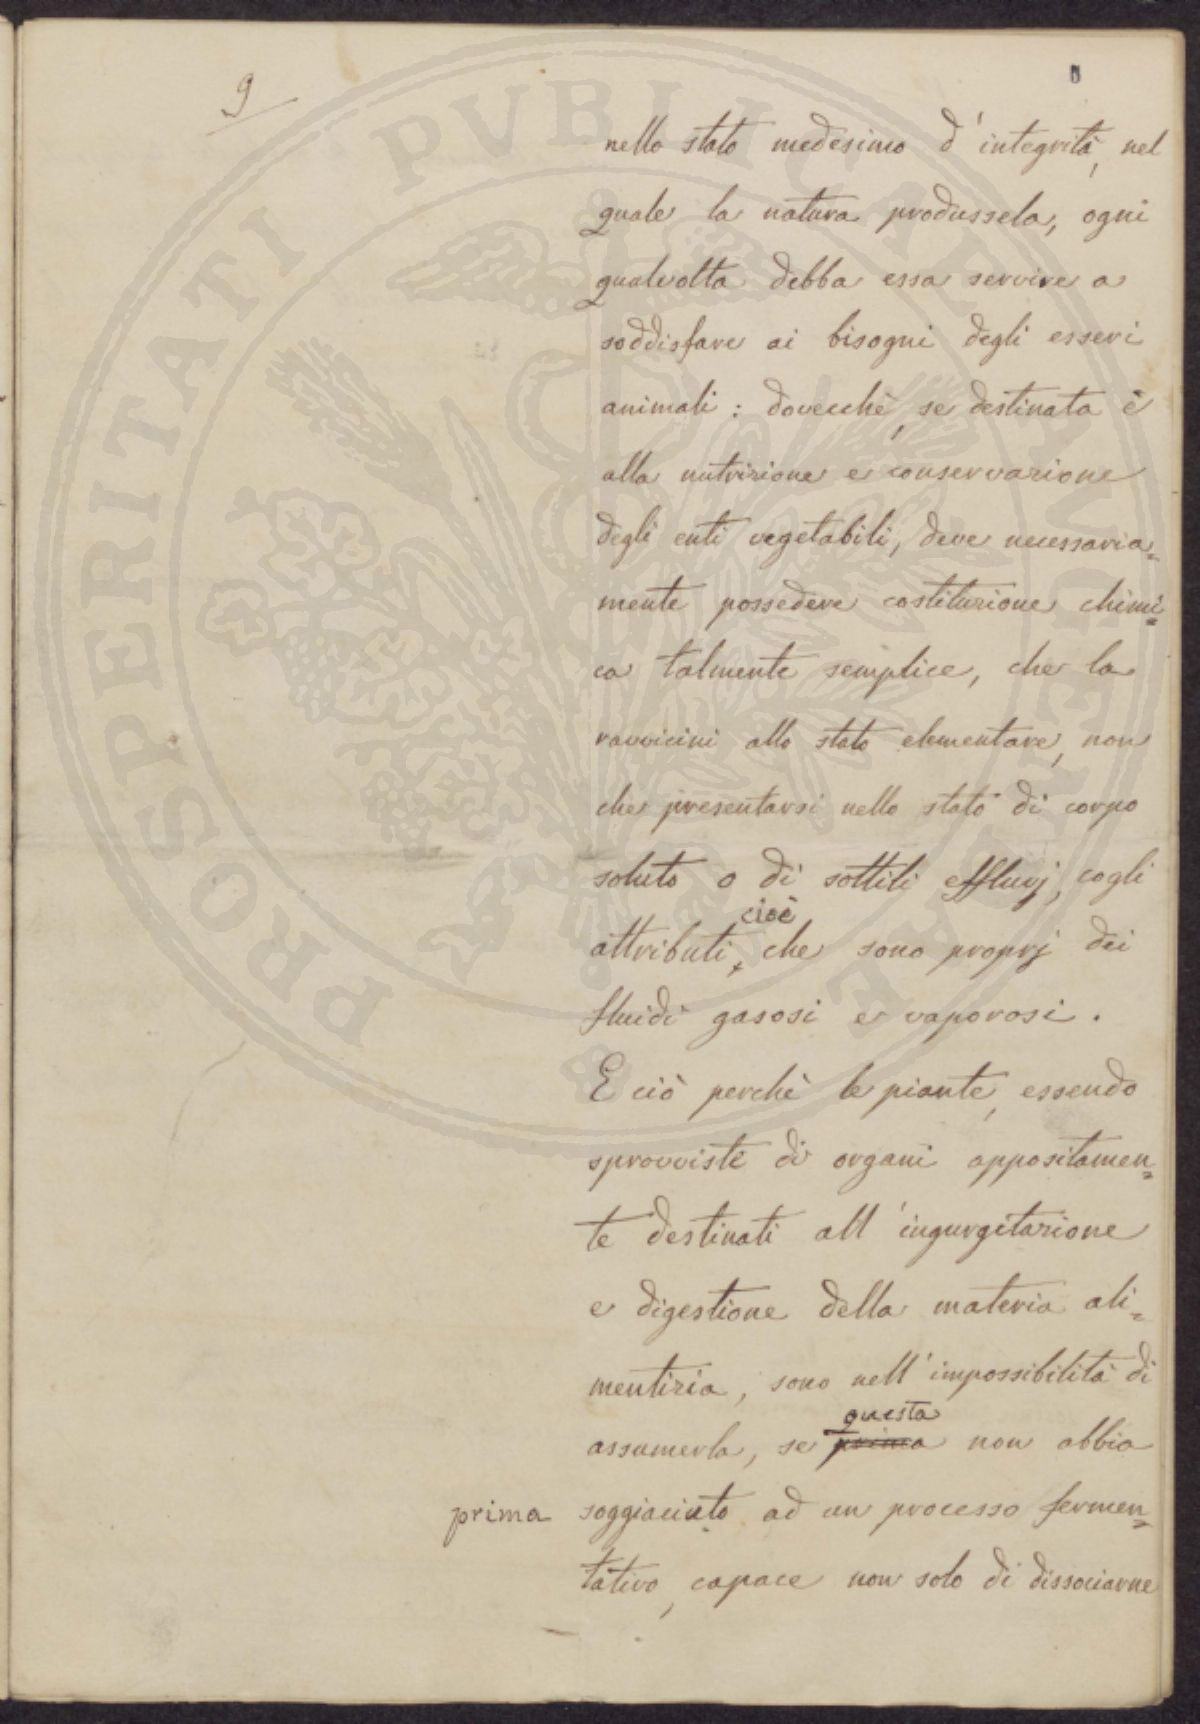 9
nello stato medesimo d'integrità, nel
quale la natura produssela, ogni
qualvolta debba essa servire a
soddisfare ai bisogni degli esseri
animali: dovecchè, se destinata è
alla nutrizione e conservazione
degli enti vegetabili, deve necessaria=
mente possedere costituzione chimi=
ca talmente semplice, che la
ravvicini allo stato elementare, non
che presentarsi nello stato di corpo
soluto o di sottili effluvj, cogli
cioè
attributi, che sono proprj dei
fluidi gasosi e vaporosi.
E ciò perchè le piante, essendo
sprovviste di organi appositamen=
te destinati all'ingurgitazione
e digestione della materia ali=
mentizia, sono nell'impossibilità di
questa
assumerla, se prima non abbia
prima soggiaciuto ad un processo fermen=
tativo, capace non solo di dissociarne
PROSPERITATI PUBLICAE